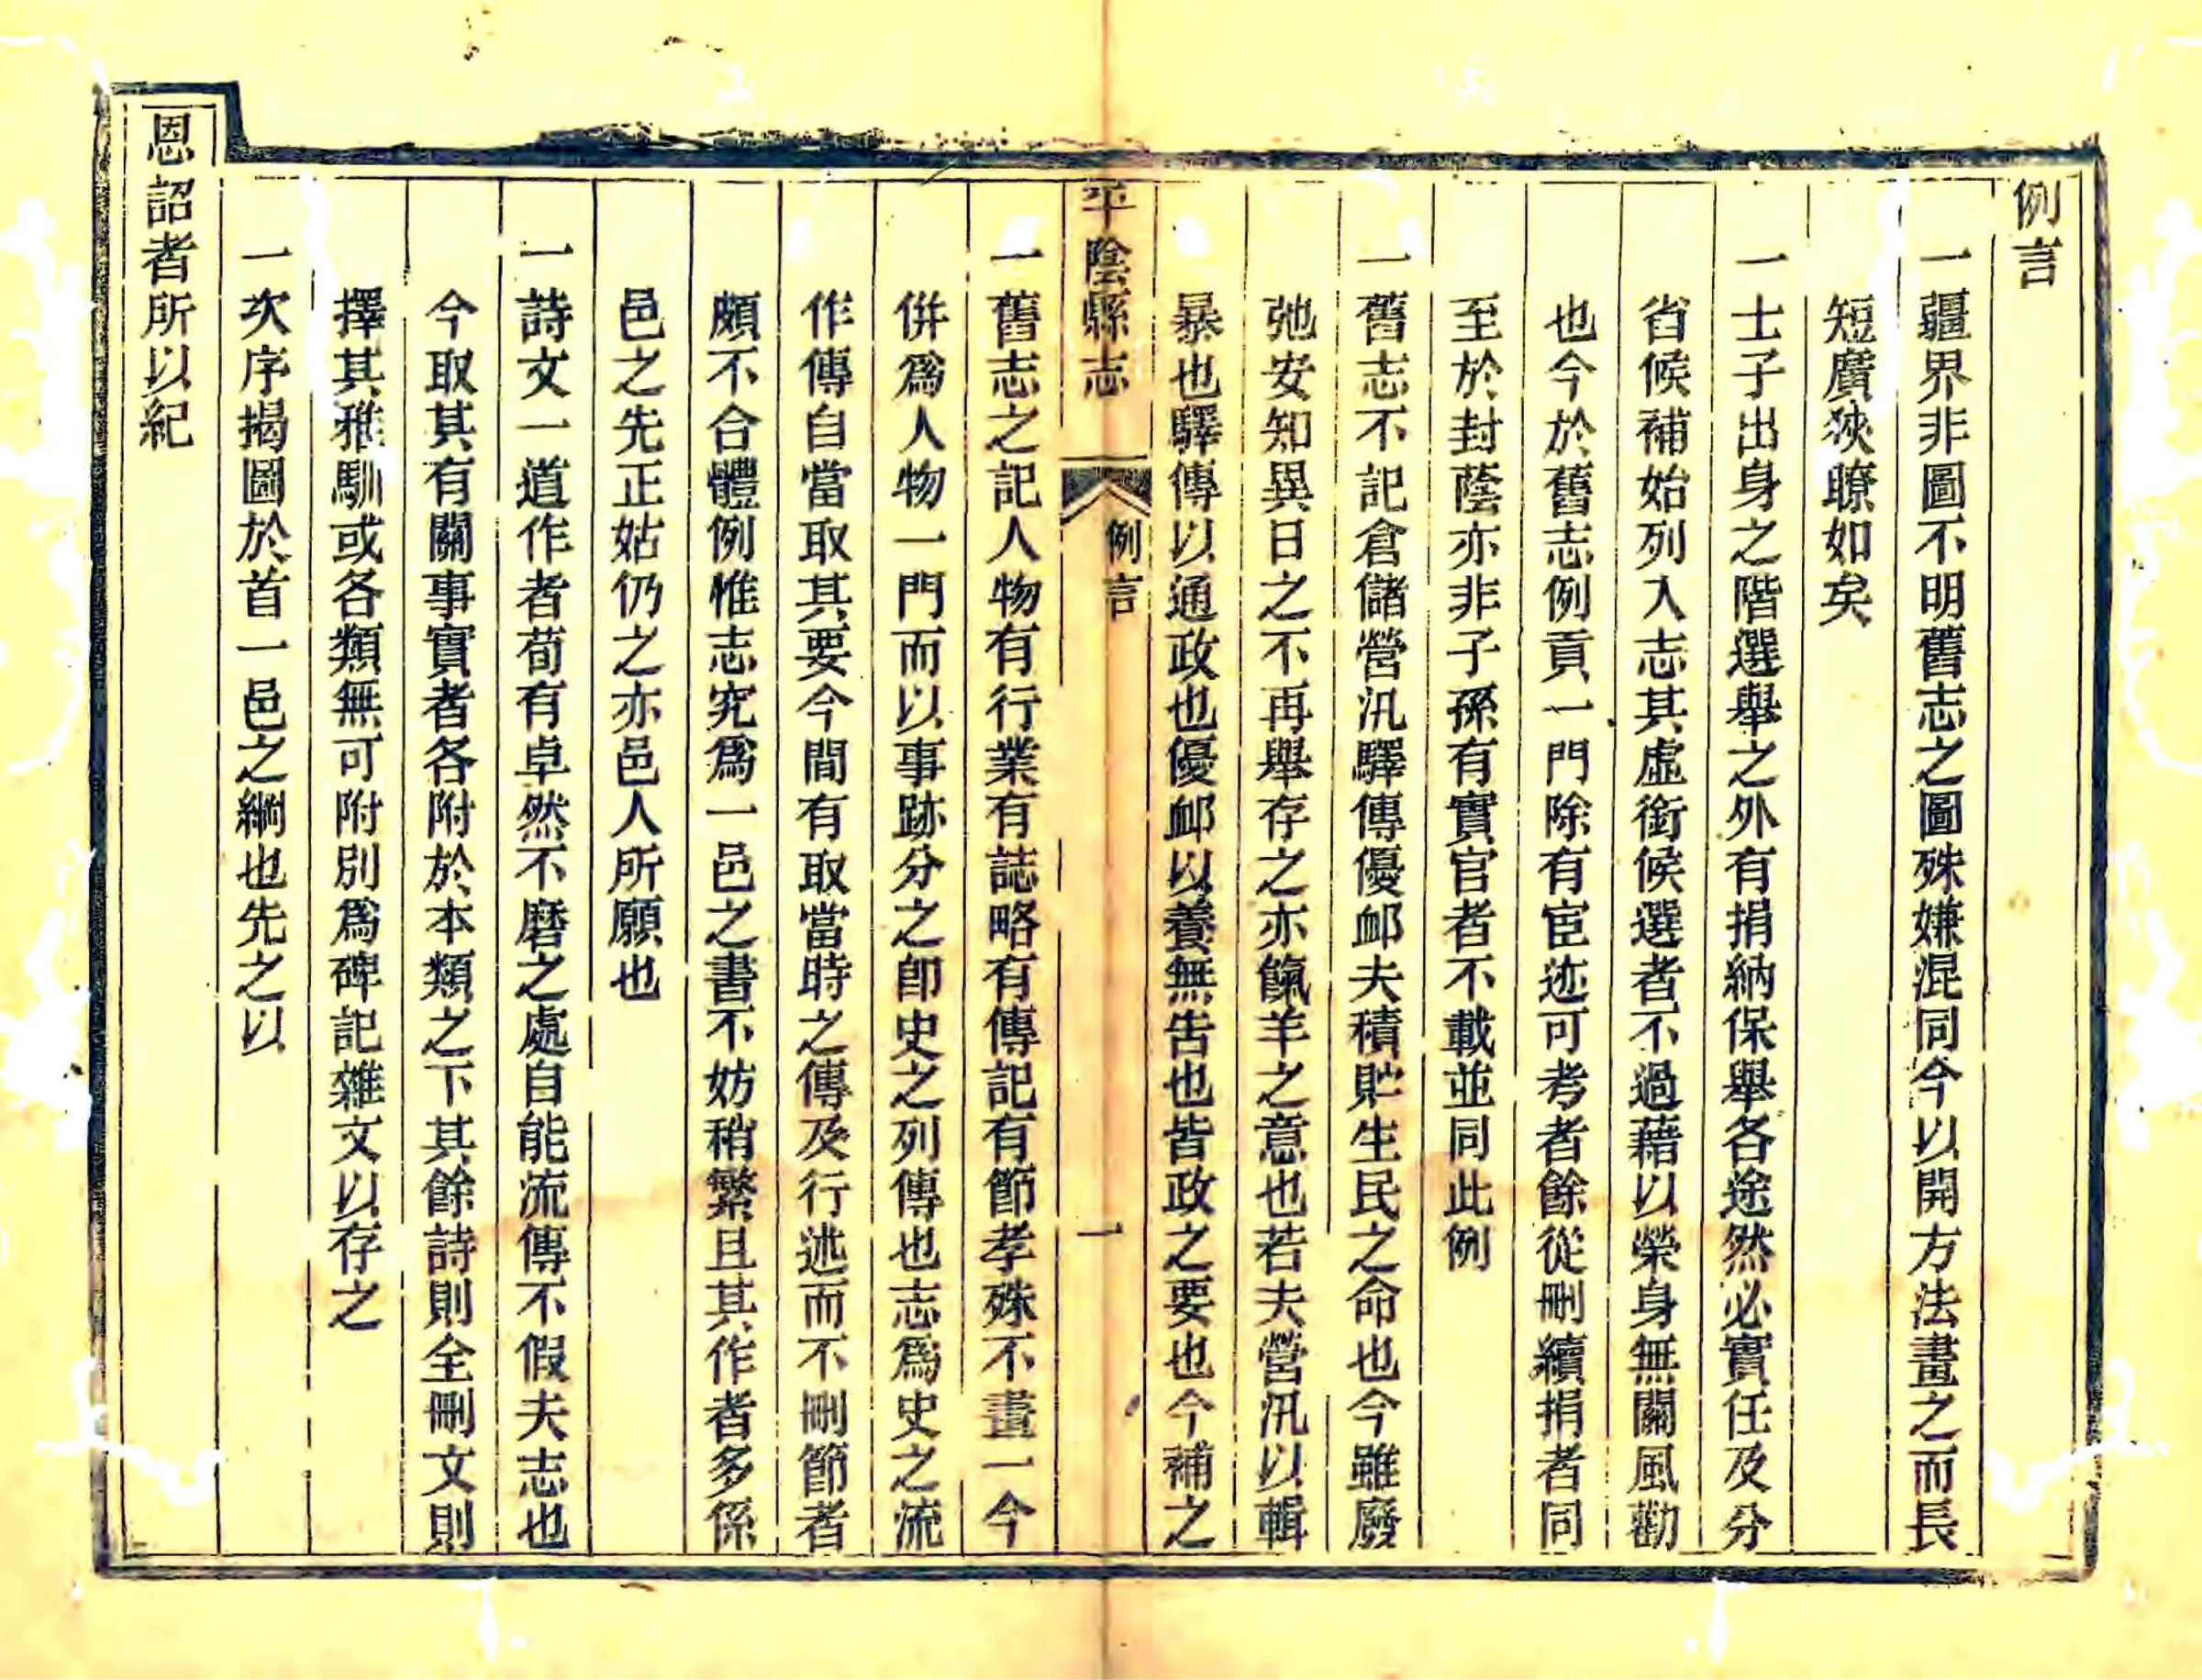 例言
一疆界非圖不明舊志之圖殊嫌混同今以開方法畫之而長
短廣狹瞭如矣
一士子出身之階選舉之外有捐納保舉各途然必實任及分
省候補始列入志其虛銜候選者不過藉以榮身無關風勸
也今於舊志例貢一門除有宦迹可考者餘從刪續捐者同
至於封蔭亦非子孫有實官者不載並同此例
一舊志不記倉儲營汛驛傳優卹夫積貯生民之命也今雖廢
弛安知異日之不再舉存之亦餼羊之意也若夫營汛以輯
暴也驛傳以通政也優卹以養無告也皆政之要也今補之
平陰縣志
例言
一
一舊志之記人物有行業有誌略有傳記有節孝殊不畫一今
併爲人物一門而以事跡分之卽史之列傳也志爲史之流
作傳自當取其要今間有取當時之傳及行述而不刪節者
頗不合體例惟志究爲一邑之書不妨稍繁且其作者多係
邑之先正姑仍之亦邑人所願也
一詩文一道作者苟有卓然不磨之處自能流傳不假夫志也
今取其有關事實者各附於本類之下其餘詩則全刪文則
擇其雅馴或各類無可附別爲碑記雜文以存之
一次序揭圖於首一邑之綱也先之以
恩詔者所以紀